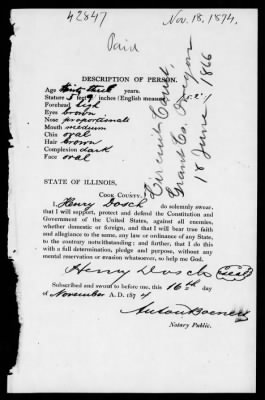 42847
Nov. 18, 1874.
Paid
DESCRIPTION OF PERSON.
Age thirty three years.
Stature 5 feet 9 inches (English measure)
Forehead high
Eyes brown
Nose proportionate
Mouth medium
Chin oval
Hair brown
Complexion dark
Face oval
Circuit Court,
Grant Co. Oregon
18 June 1866
STATE OF ILLINOIS,
COOK COUNTY.
I, Henry Dosch do solemnly swear,
that I will support, protect and defend the Constitution and
Government of the United States, against all enemies,
whether domestic or foreign, and that I will bear true faith
and allegiance to the same, any law or ordinance of any State,
to the contrary notwithstanding; and further, that I do this
with a full determination, pledge and purpose, without any
mental reservation or evasion whatsoever, so help me God.
Henry Dosch
Subscribed and sworn to before me, this 16th day
of November A. D. 1874
Anton
Notary Public.